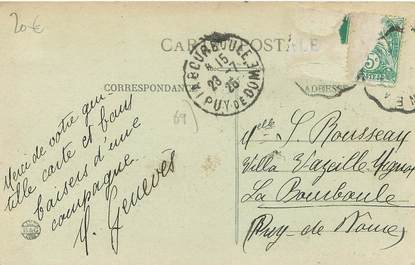 20€
CARTE POSTALE
CORRESPONDANCE
ADRESSE
LA BOURBOULE
PUY-DE-DOME
8 15
23 -7
25
69)
Merci de votre gen-
tille carte et bons
baisers d'une
compagne
Y. Genevès
Mlle S. Rousseau
Villa Vazeille
La Bourboule
(Puy-de-Dôme)